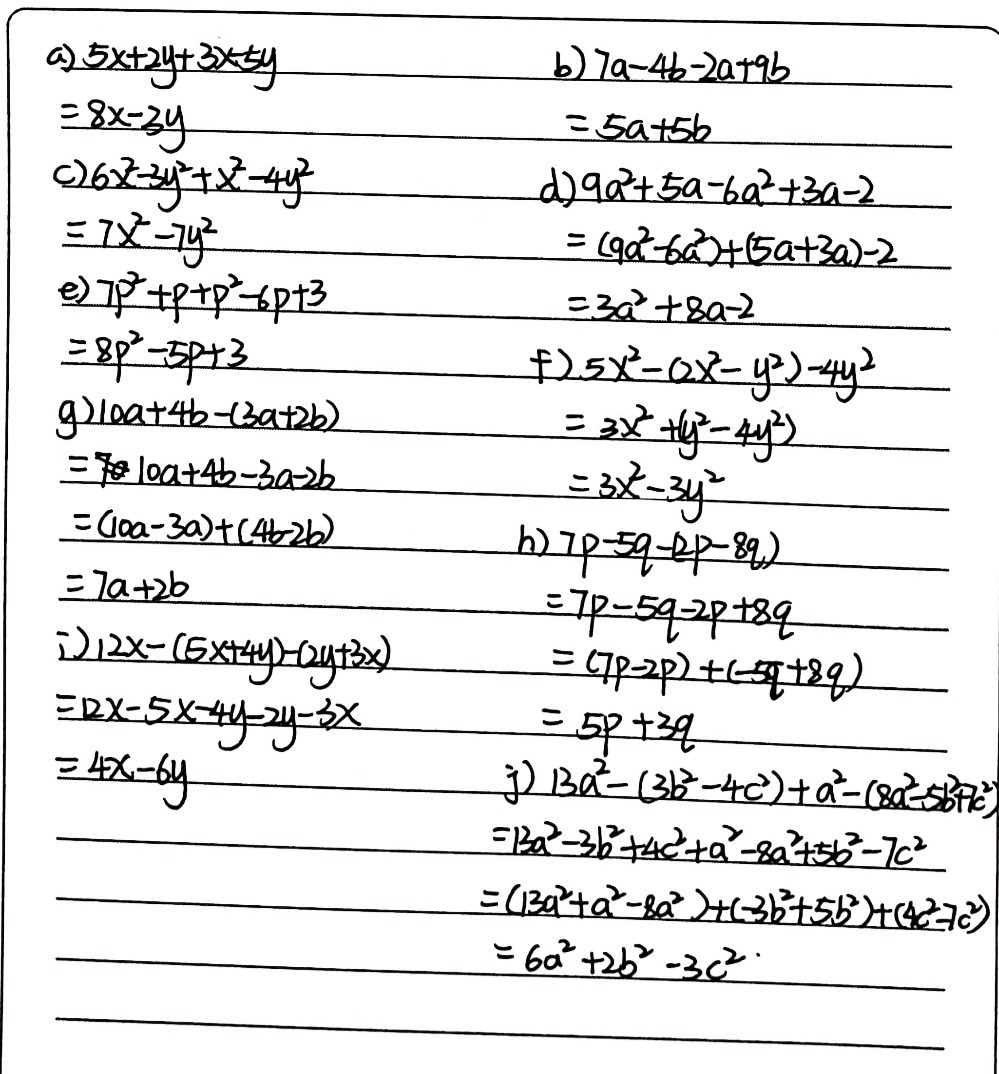 a) 5x+2y+3x-5y
= 8x-3y
c) 6x²-3y²+x²-4y²
= 7x²-7y²
e) 7p²+p+p²-6p+3
= 8p²-5p+3
g) 10a+4b-(3a+2b)
= 10a+4b-3a-2b
= (10a-3a)+(4b-2b)
= 7a+2b
i) 12x-(5x+4y)-(2y+3x)
= 12x-5x-4y-2y-3x
= 4x-6y
b) 7a-4b-2a+9b
= 5a+5b
d) 9a²+5a-6a²+3a-2
= (9a²-6a²)+(5a+3a)-2
= 3a²+8a-2
f) 5x²-(2x²-y²)-4y²
= 3x²+(y²-4y²)
= 3x²-3y²
h) 7p-5q-(2p-8q)
= 7p-5q-2p+8q
= (7p-2p)+(-5q+8q)
= 5p+3q
j) 13a²-(3b²-4c²)+a²-(8a²-5b²+7c²)
= 13a²-3b²+4c²+a²-8a²+5b²-7c²
= (13a²+a²-8a²)+(-3b²+5b²)+(4c²-7c²)
= 6a²+2b²-3c².